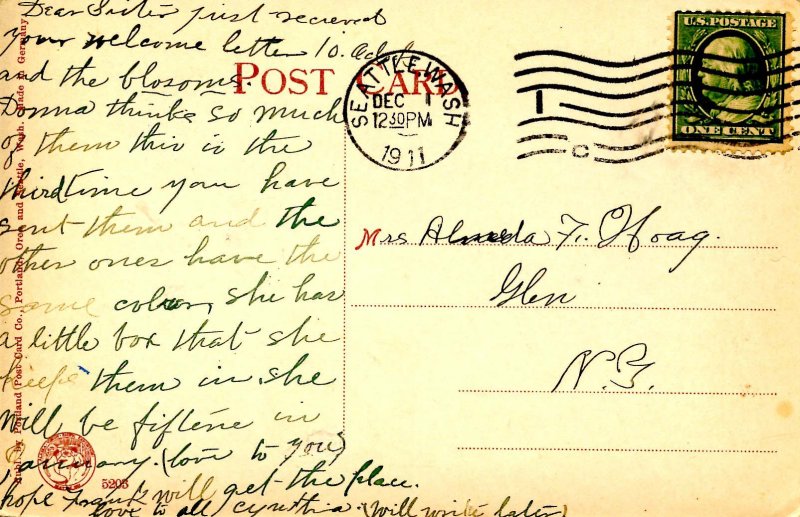 Dear Sister just recieved
your welcome letter 10.
and the blosoms.
Donna thinks so much
of them this is the
third time you have
sent them and the
other ones have the
same colour, she has
a little box that she
keeps them in, she
will be fiftene in
January. (love to you)
hope Frank will get the place.
love to all Cynthia. (will write later)
POST CARD
SEATTLE WASH.
DEC 1
12 30 PM
1911
U.S. POSTAGE
ONE CENT
Mrs Almeda F. Hoag.
Glen
N.Y.
Publ. by Portland Post Card Co., Portland, Oreg. and Seattle, Wash. Made in Germany.
5203